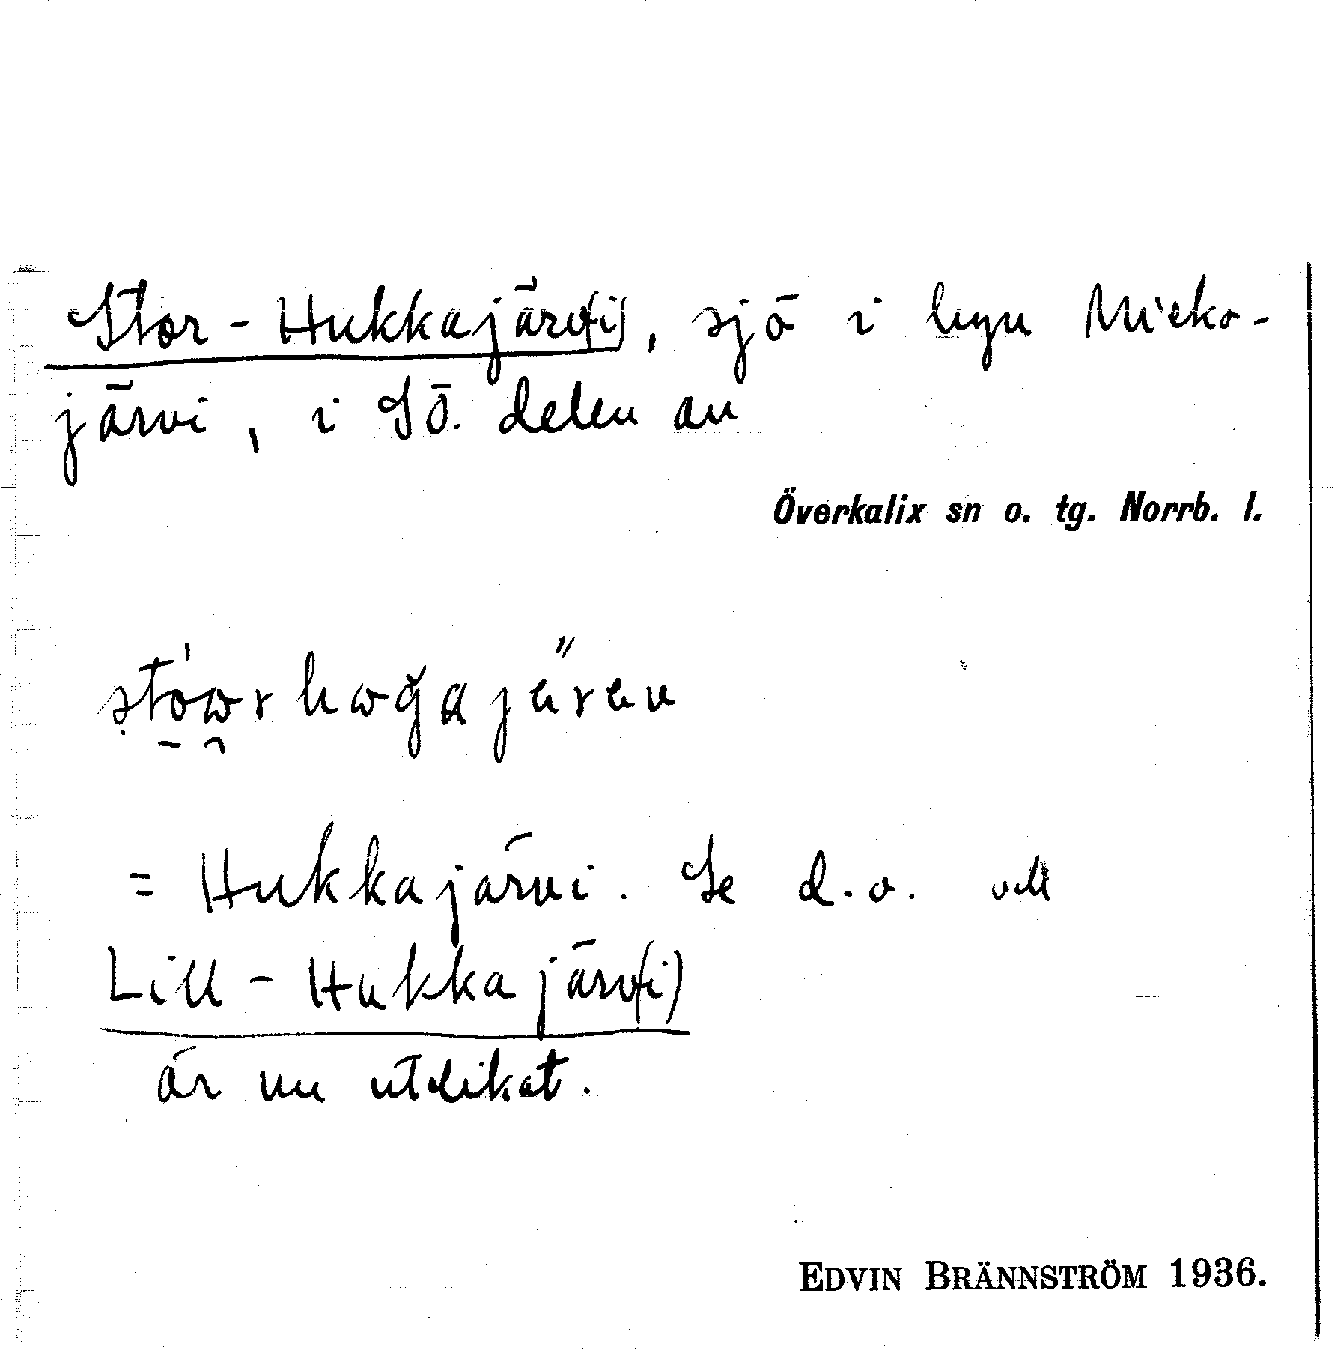 Stor-Hukkajärv(i), sjö i byn Mieko-
järvi, i SÖ. delen av
Överkalix sn o. tg. Norrb. l.
= Hukkajärvi. Se d.o. och
Lill-Hukkajärv(i)
är nu utdikat.
EDVIN BRÄNNSTRÖM 1936.